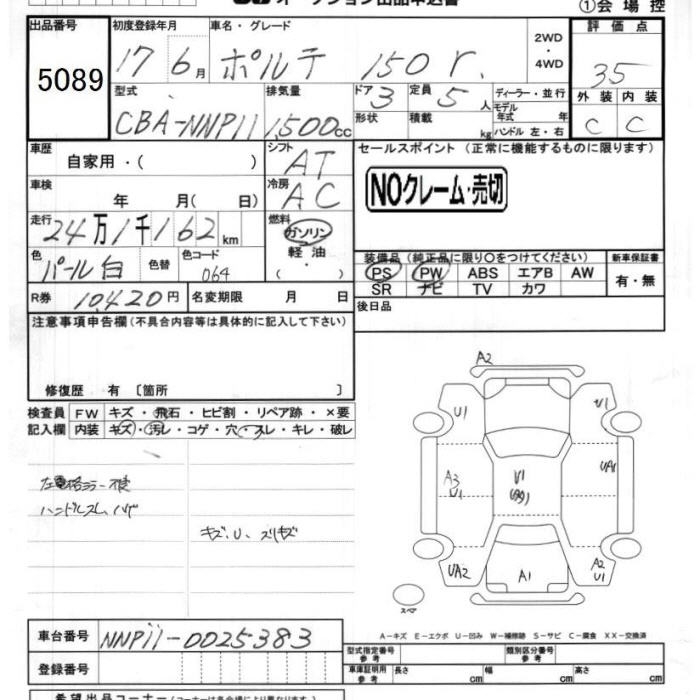 ①会場控
出品番号 初度登録年月 車名・グレード 評価点
5089 17年6月 ポルテ 150r. 2WD・4WD 35
型式 排気量 ドア 定員 ディーラー・並行 外装 内装
CBA-NNP11 1,500cc 3 5人 モデル年式 年 C C
形状 積載 kg ハンドル 左・右
車歴 シフト セールスポイント (正常に機能するものに限ります)
自家用・( ) AT
車検 冷房 NOクレーム・売切
年 月( 日) AC
走行 燃料
24万1千162km ガソリン
軽油
・( )
色 色替 色コード 装備品 (純正品に限り○をつけてください) 新車保証書
パール白 064 PS PW ABS エアB AW 有・無
SR ナビ TV カワ
R券 10,420円 名変期限 月 日 後日品
注意事項申告欄(不具合内容等は具体的に記入して下さい)
修復歴 有 〔箇所 〕
検査員 FW キズ・飛石・ヒビ割・リペア跡・×要
記入欄 内装 キズ・汚レ・コゲ・穴・スレ・キレ・破レ
ハンドルスレ、ハゲ
キズ、U、スリキズ
A2
U1 U1
A3 U1 UA1
U1
UA2 A1 A2
U1
スペア
A-キズ E-エクボ U-凹み W-補修跡 S-サビ C-腐食 XX-交換済
車台番号 NNP11-0025383
登録番号
型式指定番号 参考 類別区分番号 参考
車庫証明用 参考 長さ cm 幅 cm 高さ cm
希望出品コーナー(コーナーは各会場により異なります)